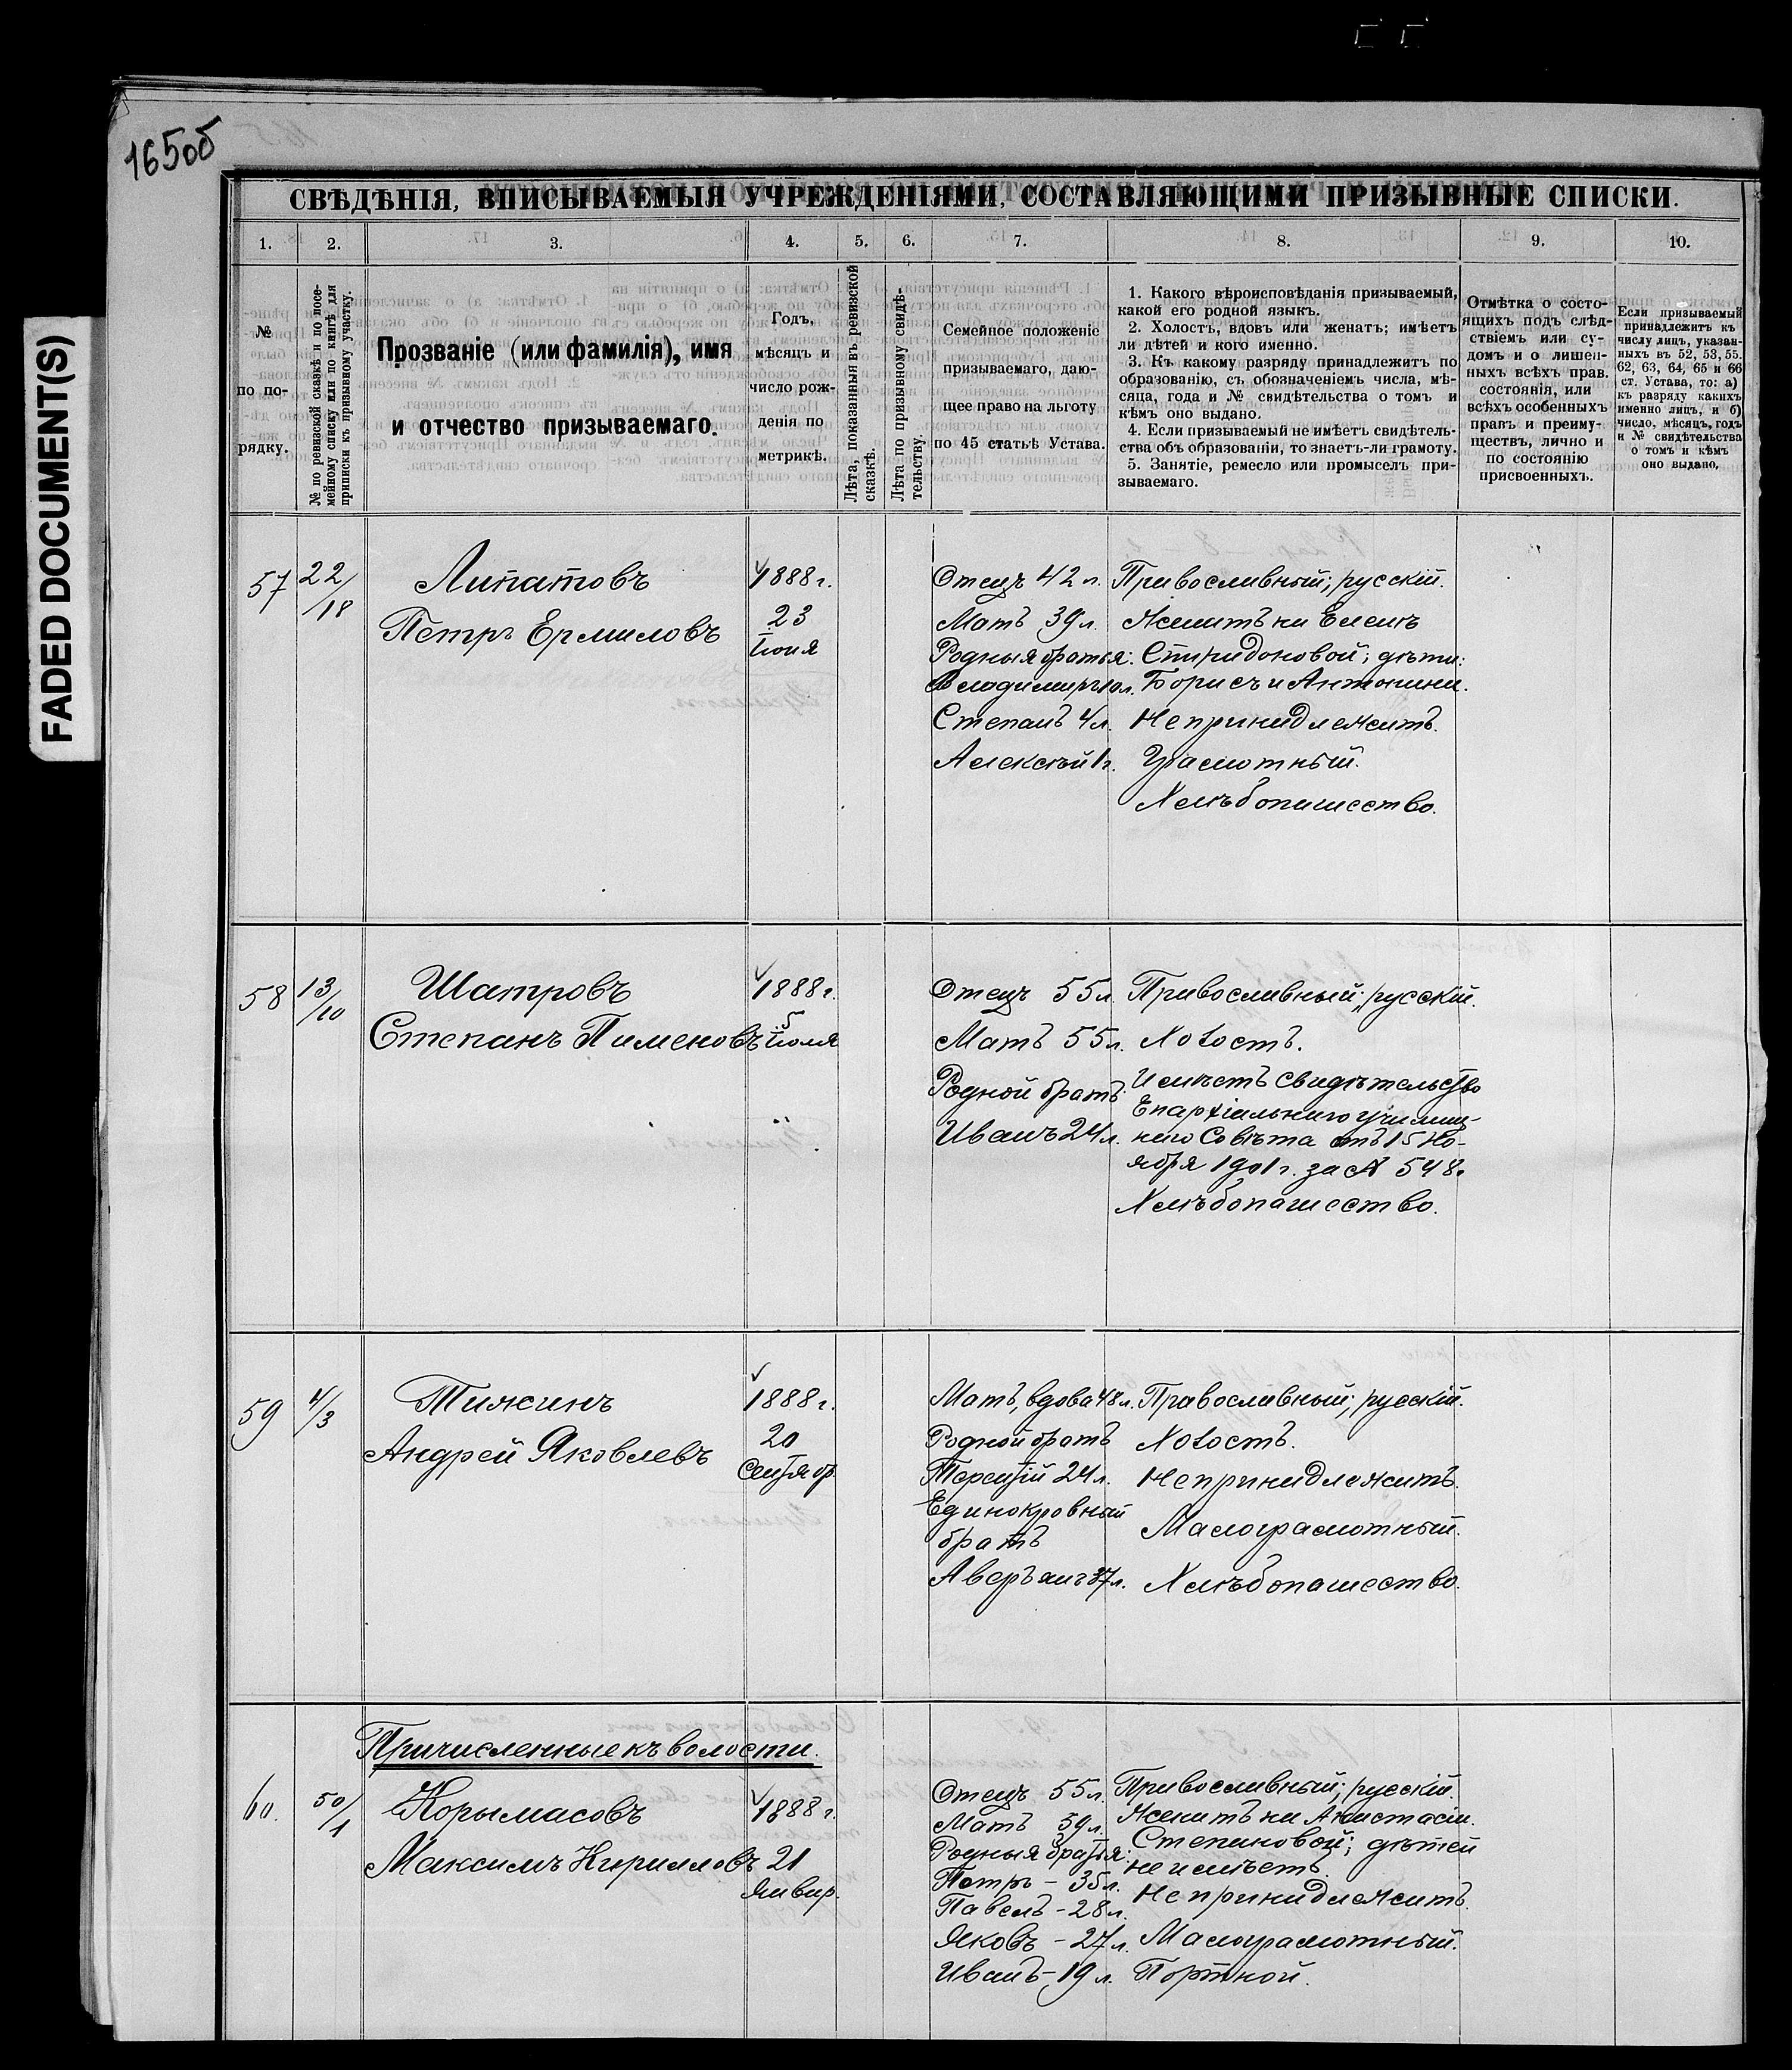 165об
FADED DOCUMENT(S)
СВѢДѢНІЯ, ВПИСЫВАЕМЫЯ УЧРЕЖДЕНІЯМИ, СОСТАВЛЯЮЩИМИ ПРИЗЫВНЫЕ СПИСКИ.
1. 2. 3. 4. 5. 6. 7. 8. 9. 10.
№
по по-
рядку.
№ по ревизской сказкѣ и по посе-
мейному списку или по книгѣ для
приписки къ призывному участку.
Прозваніе (или фамилія), имя
и отчество призываемаго.
Годъ,
мѣсяцъ и
число рож-
денія по
метрикѣ.
Лѣта, показанныя въ ревизской
сказкѣ.
Лѣта по призывному свидѣ-
тельству.
Семейное положеніе
призываемаго, даю-
щее право на льготу
по 45 статьѣ Устава.
1. Какого вѣроисповѣданія призываемый,
какой его родной языкъ.
2. Холостъ, вдовъ или женатъ; имѣетъ
ли дѣтей и кого именно.
3. Къ какому разряду принадлежитъ по
образованію, съ обозначеніемъ числа, мѣ-
сяца, года и № свидѣтельства о томъ и
кѣмъ оно выдано.
4. Если призываемый не имѣетъ свидѣтель-
ства объ образованіи, то знаетъ-ли грамоту.
5. Занятіе, ремесло или промыселъ при-
зываемаго.
Отмѣтка о состо-
ящихъ подъ слѣд-
ствіемъ или су-
домъ и о лишен-
ныхъ всѣхъ прав.
состоянія, или
всѣхъ особенныхъ
правъ и преиму-
ществъ, лично и
по состоянію
присвоенныхъ.
Если призываемый
принадлежитъ къ
числу лицъ, указан-
ныхъ въ 52, 53, 55.
62, 63, 64, 65 и 66
ст. Устава, то: а)
къ разряду какихъ
именно лицъ, и б)
число, мѣсяцъ, годъ
и № свидѣтельства
о томъ и кѣмъ
оно выдано.
57
22/18
Липатовъ
Петръ Ермиловъ
1888 г.
23
Іюня
Отецъ 42 л.
Мать 39 л.
Родныя братья:
Владимиръ 10 л.
Степанъ 4 л.
Алексѣй 1 г.
Православный; русскій.
Женатъ на Еленѣ
Спиридоновой; дѣти:
Борисъ и Антонина.
Не принадлежитъ.
Грамотный.
Хлѣбопашество.
58
13/10
Шатровъ
Степанъ Пименовъ
1888 г.
5
Іюля
Отецъ 55 л.
Мать 55 л.
Родной братъ
Иванъ 24 л.
Православный; русскій.
Холостъ.
Имѣетъ свидѣтельство
Епархіальнаго училищ-
наго Совѣта отъ 15 Но-
ября 1901 г. за № 548.
Хлѣбопашество.
59
4/3
Тяжинъ
Андрей Яковлевъ
1888 г.
20
Сентябр.
Мать, вдова 48 л.
Родной братъ
Терентій 24 л.
Единокровный
братъ
Аверьянъ 37 л.
Православный; русскій.
Холостъ.
Не принадлежитъ.
Малограмотный.
Хлѣбопашество.
Причисленные къ волости.
60.
50/1
Корымасовъ
Максимъ Кирилловъ
1888 г.
21
Январ.
Отецъ 55 л.
Мать 59 л.
Родныя братья:
Петръ - 35 л.
Павелъ - 28 л.
Яковъ - 27 л.
Иванъ - 19 л.
Православный; русскій.
Женатъ на Анастасіи
Степановой; дѣтей
не имѣетъ.
Не принадлежитъ.
Малограмотный.
Портной.